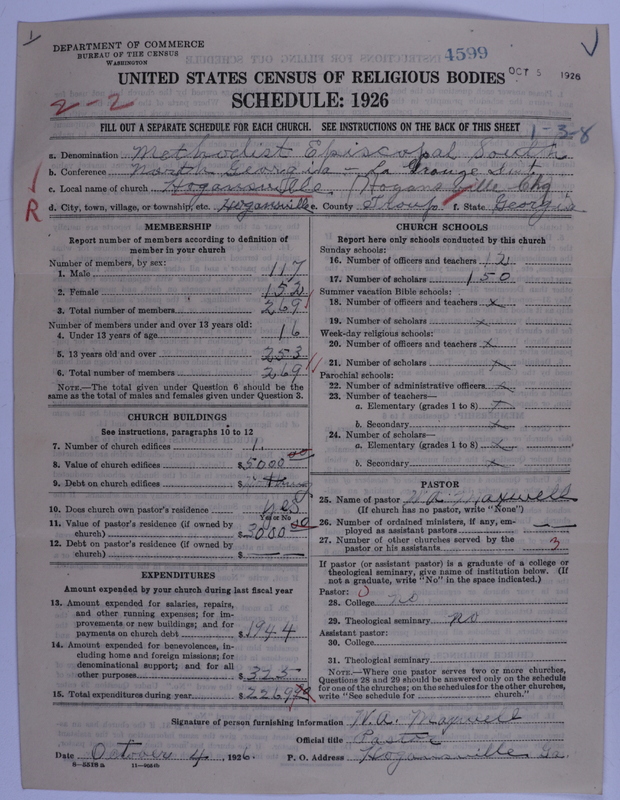 DEPARTMENT OF COMMERCE
BUREAU OF THE CENSUS
WASHINGTON
4599
OCT 5 1926
UNITED STATES CENSUS OF RELIGIOUS BODIES
SCHEDULE: 1926
2-2
FILL OUT A SEPARATE SCHEDULE FOR EACH CHURCH. SEE INSTRUCTIONS ON THE BACK OF THIS SHEET
1-3-8
a. Denomination Methodist Episcopal South
b. Conference North Georgia - La Grange Dist.
c. Local name of church Hogansville (Hogansville Chg
R
d. City, town, village, or township, etc. Hogansville e. County Troup f. State Georgia
MEMBERSHIP
Report number of members according to definition of member in your church
Number of members, by sex:
1. Male 117
2. Female 152
3. Total number of members 269
Number of members under and over 13 years old:
4. Under 13 years of age 16
5. 13 years old and over 253
6. Total number of members 269
NOTE.—The total given under Question 6 should be the
same as the total of males and females given under Question 3.
CHURCH BUILDINGS
See instructions, paragraphs 10 to 12
7. Number of church edifices 1
8. Value of church edifices $5000 00
9. Debt on church edifices $
10. Does church own pastor's residence yes
Yes or No
11. Value of pastor's residence (if owned by
church) $3000 00
12. Debt on pastor's residence (if owned by
church) $ — —
EXPENDITURES
Amount expended by your church during last fiscal year
13. Amount expended for salaries, repairs,
and other running expenses; for im-
provements or new buildings; and for
payments on church debt $1944
14. Amount expended for benevolences, in-
cluding home and foreign missions; for
denominational support; and for all
other purposes $325
15. Total expenditures during year $2269
CHURCH SCHOOLS
Report here only schools conducted by this church
Sunday schools:
16. Number of officers and teachers 12
17. Number of scholars 150
Summer vacation Bible schools:
18. Number of officers and teachers x
19. Number of scholars x
Week-day religious schools:
20. Number of officers and teachers x
21. Number of scholars x
Parochial schools:
22. Number of administrative officers x
23. Number of teachers—
a. Elementary (grades 1 to 8) x
b. Secondary x
24. Number of scholars—
a. Elementary (grades 1 to 8) x
b. Secondary x
PASTOR
25. Name of pastor W. A. Maxwell
(If church has no pastor, write "None")
26. Number of ordained ministers, if any, em-
ployed as assistant pastors —
27. Number of other churches served by the
pastor or his assistants 3
If pastor (or assistant pastor) is a graduate of a college or
theological seminary, give name of institution below. (If
not a graduate, write "No" in the space indicated.)
Pastor:
28. College no
29. Theological seminary no
Assistant pastor:
30. College
31. Theological seminary
NOTE.—Where one pastor serves two or more churches,
Questions 28 and 29 should be answered only on the schedule
for one of the churches; on the schedules for the other churches,
write "See schedule for church."
Signature of person furnishing information W. A. Maxwell
Official title Pastor
Date October 4, 1926. P. O. Address Hogansville Ga.